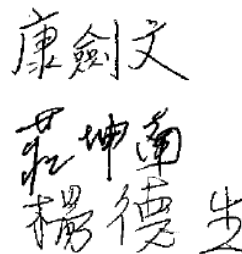 康劍文
莊坤南
楊德生